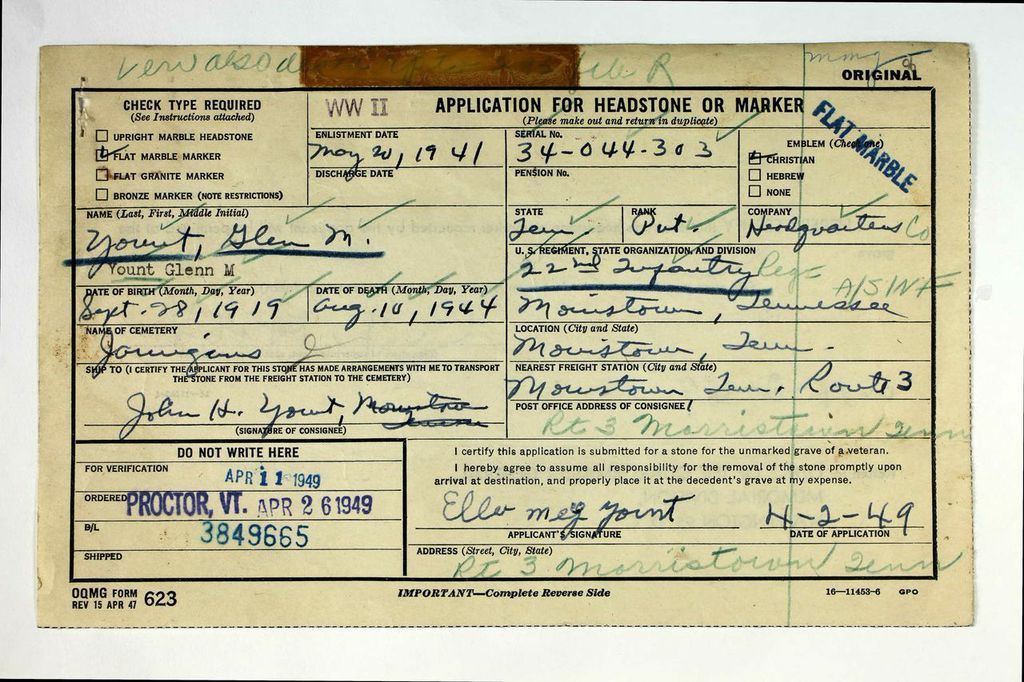 ORIGINAL
CHECK TYPE REQUIRED
(See Instructions attached)
UPRIGHT MARBLE HEADSTONE
FLAT MARBLE MARKER
FLAT GRANITE MARKER
BRONZE MARKER (NOTE RESTRICTIONS)
WW II
APPLICATION FOR HEADSTONE OR MARKER
(Please make out and return in duplicate)
ENLISTMENT DATE
May 20, 1941
DISCHARGE DATE
SERIAL No.
34-044-303
PENSION No.
EMBLEM (Check one)
CHRISTIAN
HEBREW
NONE
FLAT MARBLE
NAME (Last, First, Middle Initial)
Yount, Glen M.
Yount Glenn M
STATE
Tenn.
RANK
Pvt.
COMPANY
Headquarters Co
U. S. REGIMENT, STATE ORGANIZATION, AND DIVISION
22nd Infantry Reg
DATE OF BIRTH (Month, Day, Year)
Sept. 28, 1919
DATE OF DEATH (Month, Day, Year)
Aug. 10, 1944
Morristown, Tennessee
NAME OF CEMETERY
Jarnigans
LOCATION (City and State)
Morristown, Tenn.
SHIP TO (I CERTIFY THE APPLICANT FOR THIS STONE HAS MADE ARRANGEMENTS WITH ME TO TRANSPORT
THE STONE FROM THE FREIGHT STATION TO THE CEMETERY)
John H. Yount, Morristown
Tenn.
(SIGNATURE OF CONSIGNEE)
NEAREST FREIGHT STATION (City and State)
Morristown Tenn. Route 3
POST OFFICE ADDRESS OF CONSIGNEE
Rt 3 Morristown Tenn
DO NOT WRITE HERE
FOR VERIFICATION
APR 11 1949
ORDERED
PROCTOR, VT. APR 26 1949
B/L
3849665
SHIPPED
I certify this application is submitted for a stone for the unmarked grave of a veteran.
I hereby agree to assume all responsibility for the removal of the stone promptly upon
arrival at destination, and properly place it at the decedent's grave at my expense.
Yount 4-2-49
APPLICANT'S SIGNATURE
DATE OF APPLICATION
ADDRESS (Street, City, State)
Rt 3 Morristown Tenn
OQMG FORM
REV 15 APR 47 623
IMPORTANT—Complete Reverse Side
16—11453-6 GPO